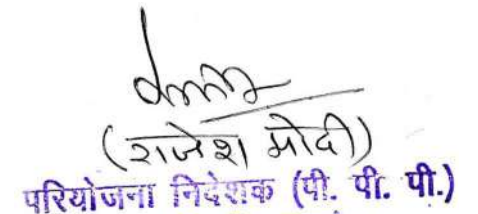 (राजेश मोदी)
परियोजना निदेशक (पी. पी. पी.)